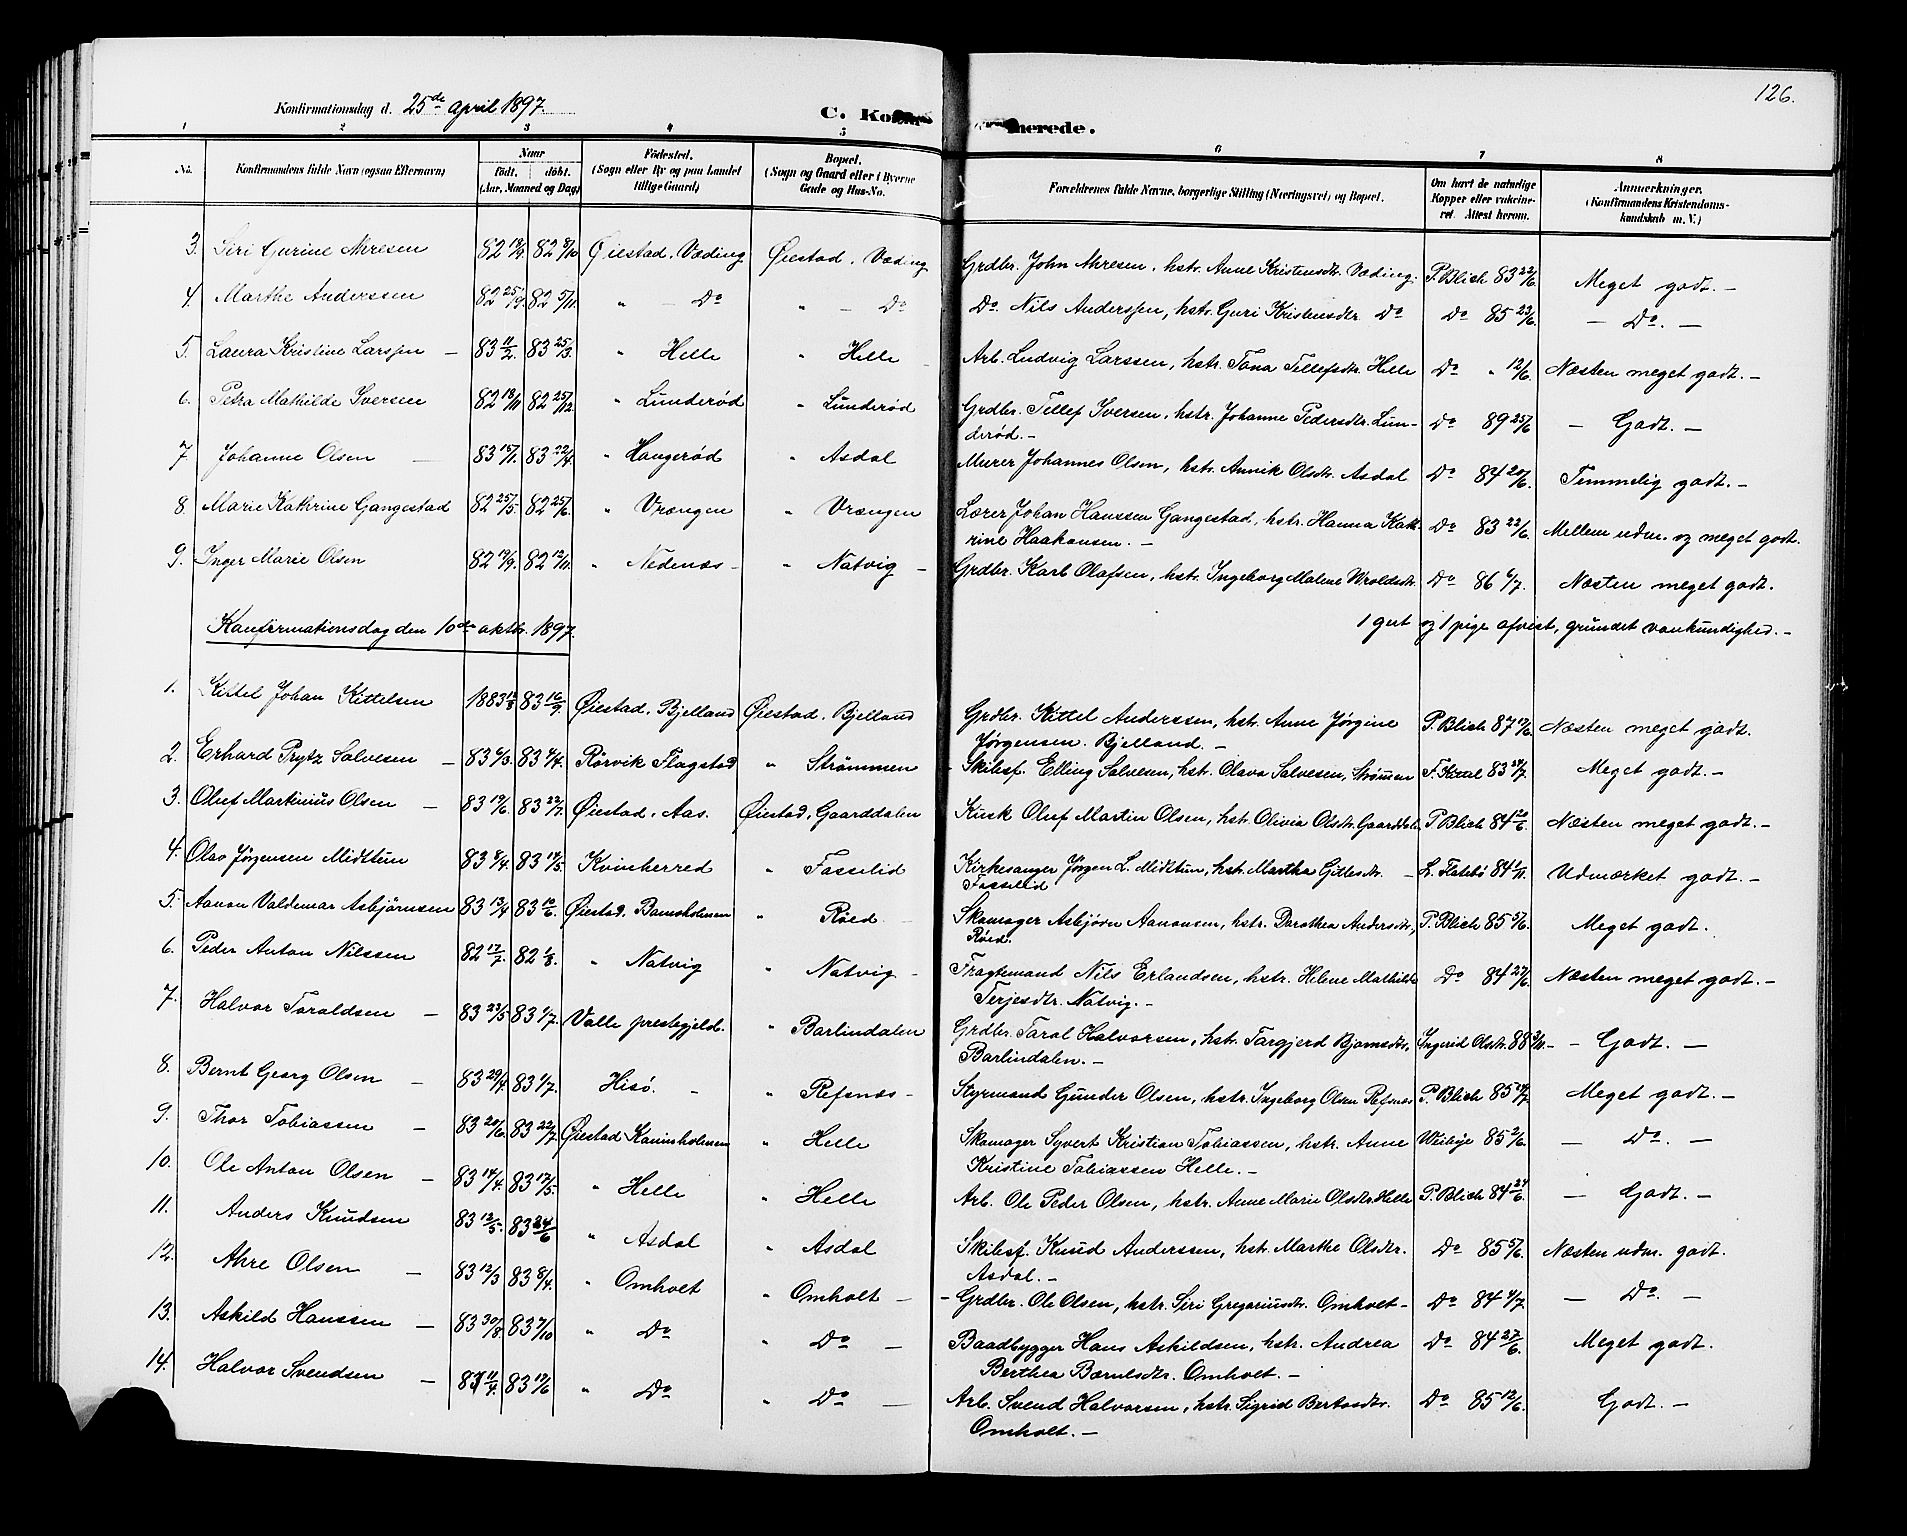 126.
Konfirmationsdag d. 25de april 1897.
C. Konfir merede.
1 2 3 4 5 6 7 8
No. Konfirmandens fulde Navn (ogsaa Efternavn) Naar födt. döbt. (Aar, Maaned og Dag) Födested. (Sogn eller By og paa Landet tillige Gaard) Bopæl. (Sogn og Gaard eller i Byerne Gade og Hus-No. Forældrenes fulde Navne, borgerlige Stilling (Næringsvei) og Bopæl. Om havt de naturlige Kopper eller vaksineret. Attest herom. Anmærkninger. (Konfirmandens Kristendomskundskab m. V.)
3. Siri Gurine Ahresen 82 82 8/10 Øiestad, Væding Øiestad, Væding Grdbr. John Ahresen, hstr. Anne Kristensdtr. Væding. P. Blich 83 22/6. Meget godt. —
4. Marthe Anderssen 82 25/9. 82 5/11. " — Do " — Do Do. Nils Anderssen, hstr. Guri Kristensdtr. Do Do 85 23/6. — Do. —
5. Laura Kristine Larssen — 83 11/2. 83 25/3. " Helle " Helle Arb. Ludvig Larssen, hstr. Tona Tellefsdtr. Helle Do " 12/6. Næsten meget godt. —
6. Petra Mathilde Iversen 82 13/11 82 25/12. " Lunderød " Lunderød Grdbr. Tellef Iversen, hstr. Johanne Pedersdtr. Lun-
derød. — Do 89 25/6 — Godt. —
7. Johanne Olsen — 83 15/1. 83 22/4. " Haugerød " Asdal Murer Johannes Olsen, hstr. Annik Olsdtr. Asdal Do 84 20/6. Temmelig godt. —
8. Marie Kathrine Gangestad 82 25/5. 82 25/6. " Vrængen " Vrængen Lærer Johan Hanssen Gangestad, hstr. Hanna Kath-
rine Haakonsen. — Do 83 22/6. Mellem udm. og meget godt.
9. Inger Marie Olsen 82 19/9. 82 12/11. " Nedenæs - " Natvig — Grdbr. Karl Olafsen, hstr. Ingeborg Malene Wroldsdtr. Do 86 6/7. Næsten meget godt.
Konfirmationsdag den 10de oktbr. 1897. 1 gut og 1 pige afvist, grundet vankundighed. —
1. Kittel Johan Kittelsen 1883 83 16/9. Øiestad, Bjelland Øiestad, Bjelland Grdbr. Kittel Anderssen, hstr. Anne Jørgine
Jørgensen. Bjelland. — P. Blich 87 Næsten meget godt.
2. Erhard Prytz Salvesen — 83 6/3. 83 Rørvik Flagstad " Strømmen Skibsf. Elling Salvesen, hstr. Olava Salvesen, Strømmen 83 Meget godt. —
3. Oluf Markinius Olsen — 83 19/6. 83 22/7. Øiestad, Aas. Øiestad, Gaarddalen Kusk Oluf Martin Olsen, hstr. Olivia Olsdtr. Gaarddalen P. Blich 84 Næsten meget godt. —
4. Olav Jørgensen Midttun 83 8/4. 83 17/5. Kvinherred " Fasselid Kirkesanger Jørgen L. Midttun, hstr. Martha Gittlesdtr. —
Fasselid L. Flatebø 84 1/11. Udmærket godt. —
5. Aanon Valdemar Asbjørnsen 83 13/4 83 Øiestad, Bamsholmen " Røed — Skomager Asbjørn Aanonsen, hstr. Dorothea Andersdtr,
Røed. P. Blich 85 5/6. Meget godt.
6. Peder Anton Nilssen 82 17/7. 82 1/8. " Natvig " Natvig — Fragtemand Nils Erlandsen, hstr. Helene Mathilde
Terjesdtr. Natvig. — Do 84 27/6. Næsten meget godt. —
7. Halvor Taraldsen — 83 23/5 83 1/7. Valle prestegjeld. " Barlindalen Grdbr. Taral Halvorsen, hstr. Targjerd Bjørnsdtr,
Barlindalen. — Ingerid Olsdtr. 88 3/11. — — Godt. —
8. Bernt Georg Olsen — 83 29/4. 83 1/7. Hisø. — " Refsnæs — Styrmand Gunder Olsen, hstr. Ingeborg Olsen Refsnæs P. Blich 85 Meget godt. —
9. Thor Tobiassen — 83 20/6. 83 22/7. Øiestad " Helle Skomager Syvert Kristian Tobiassen, hstr. Anne
Kristine Tobiassen Helle. — 85 2/6. — Do. —
10. Ole Anton Olsen — 83 14/4. 83 17/5. " Helle " Helle Arb. Ole Peder Olsen, hstr. Anne Marie Olsdtr. Helle P. Blich 84 24/6. — Godt. —
11. Anders Knudsen 83 12/5. 83 24/6 " Asdal " Asdal Skibsf. Knud Anderssen, hstr. Marthe Olsdtr.
Asdal. — Do 85 5/6. Næsten udm. godt.
12. Ahre Olsen — 83 12/3 83 8/4. " Omholt " Omholt — - Grdbr. Ole Olsen, hstr. Siri Gregoriusdtr. Omholt - Do 84 — Do. —
13. Askild Hanssen — 83 30/8 83 7/10 " Do " Do — Baadbygger Hans Askildsen, hstr. Andrea
Berthea Børulsdtr. Omholt. — Do 84 27/6. Meget godt.
14. Halvor Svendsen — 83 11/4. 83 " Do " Do — Arb. Svend Halvorsen, hstr. Sigrid
Omholt. — Do 85 12/6. Godt. —